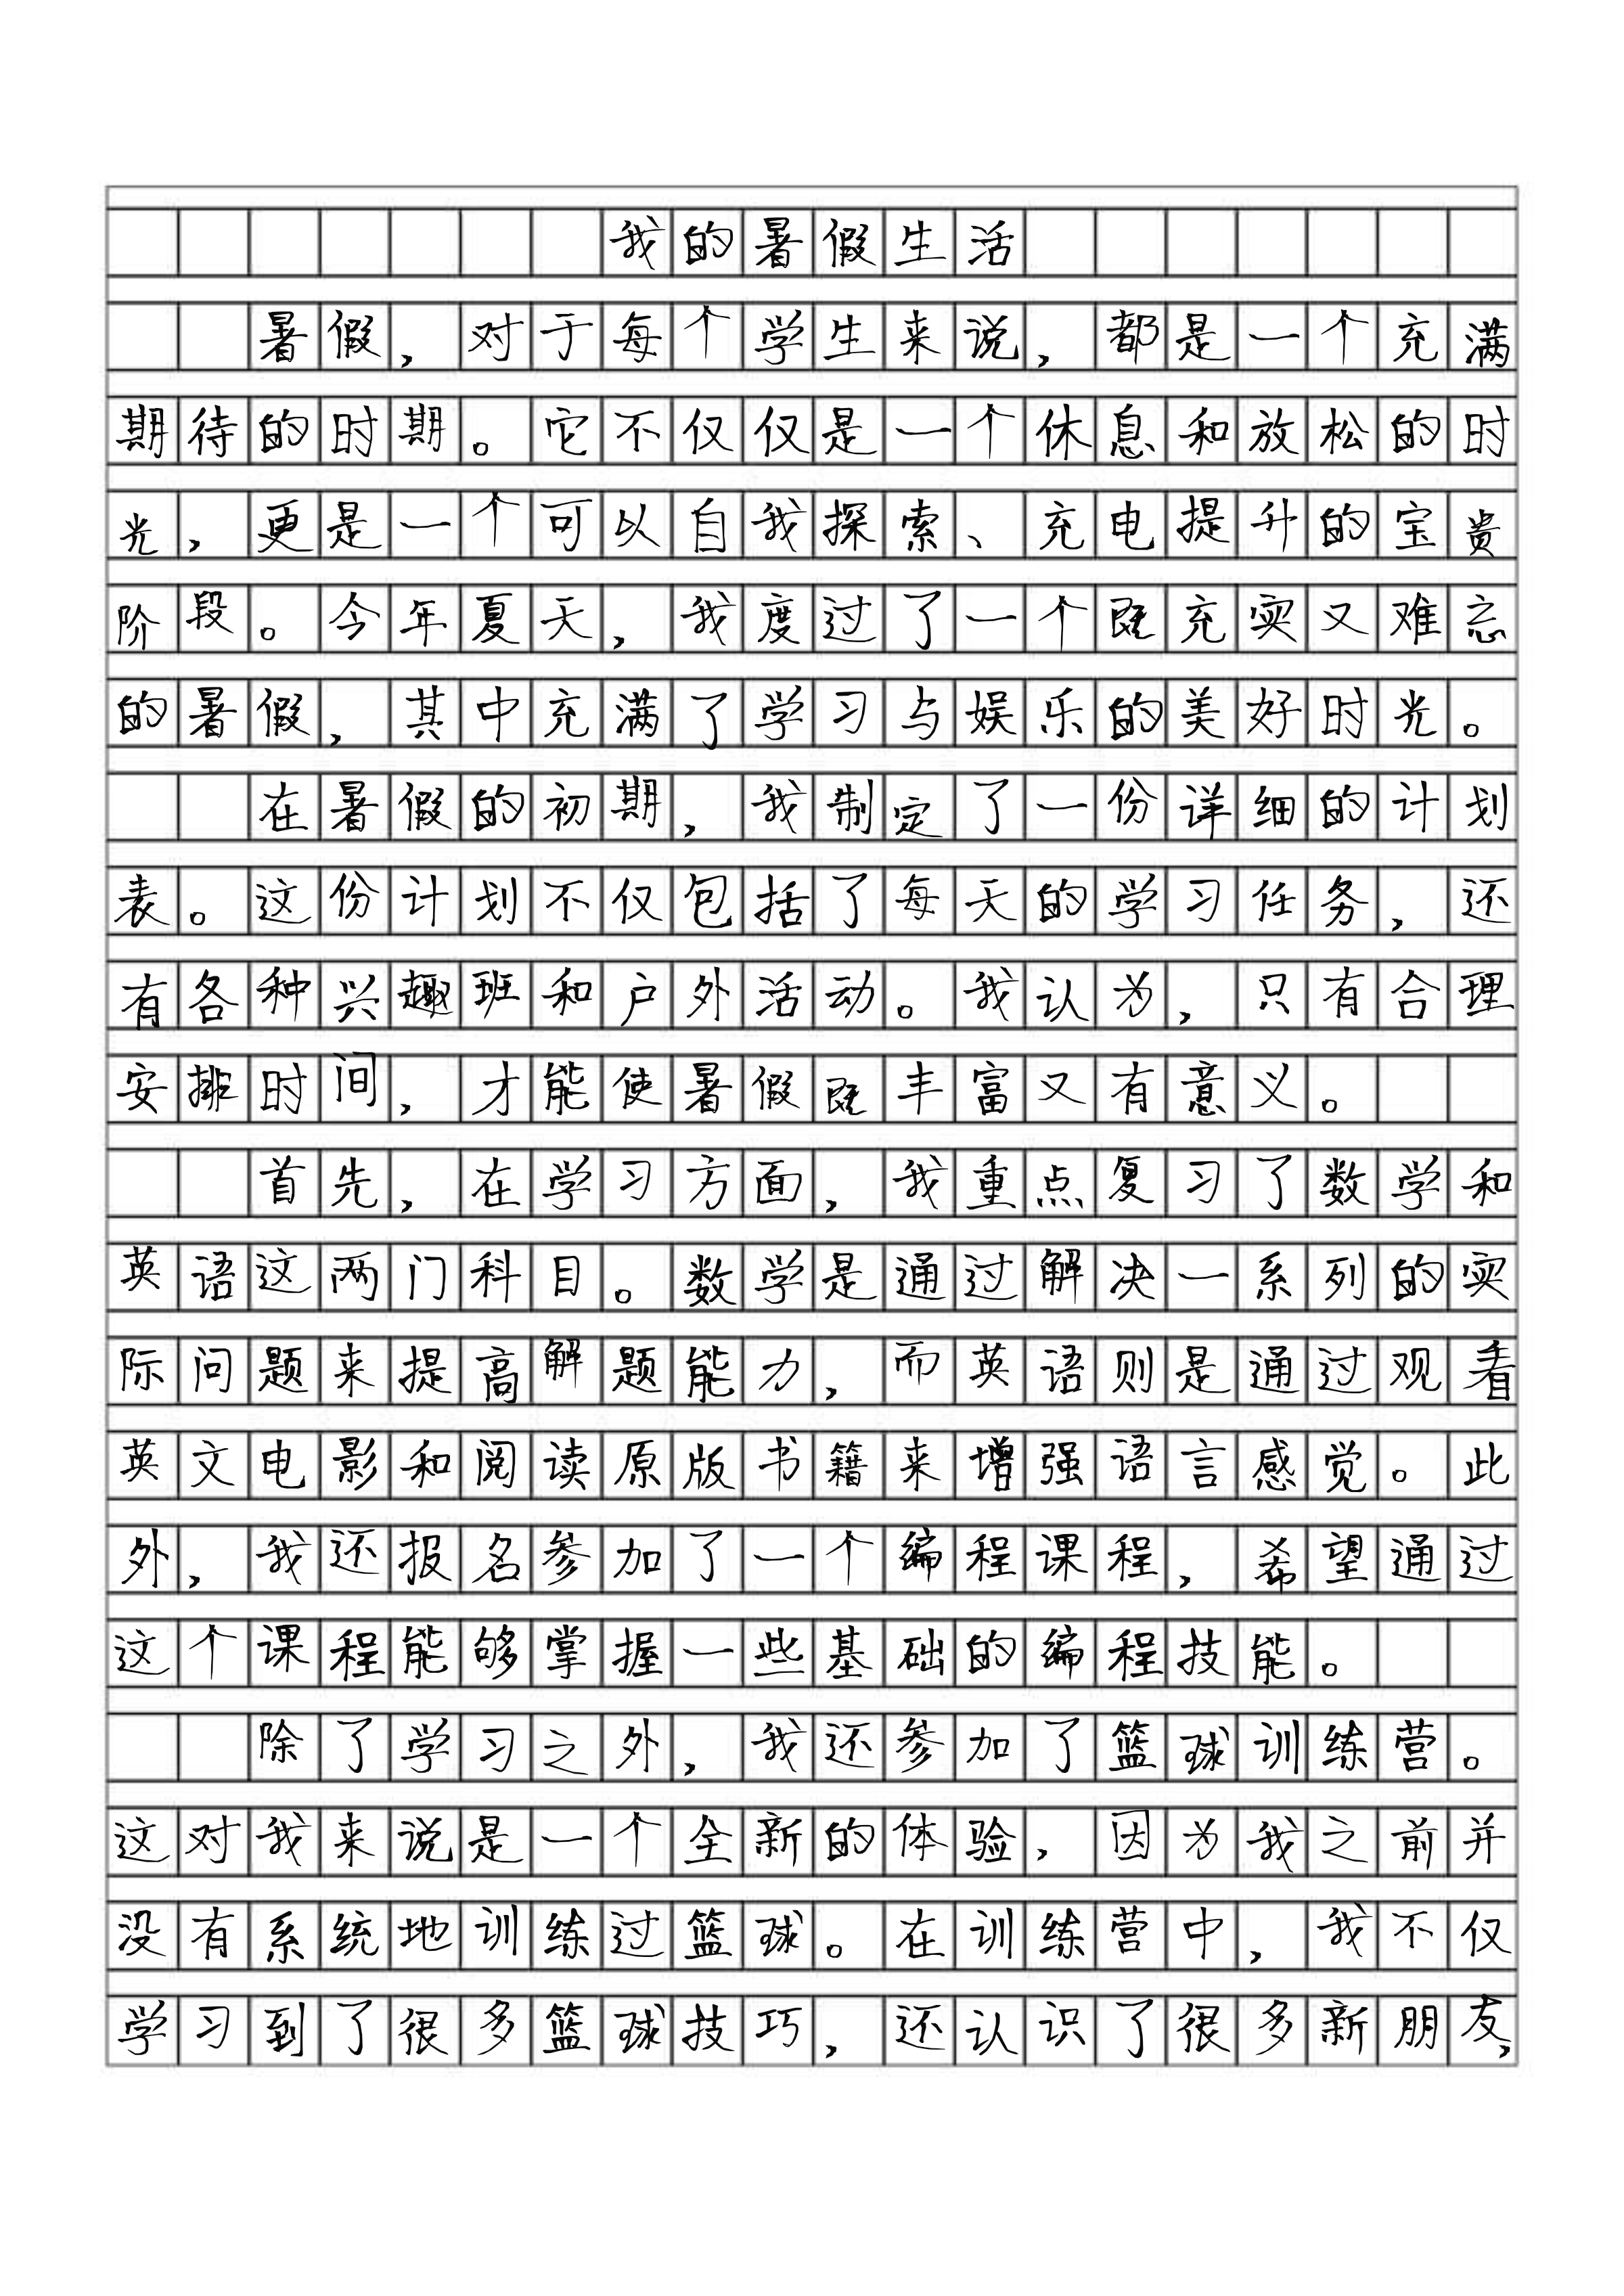 我的暑假生活
暑假，对于每个学生来说，都是一个充满
期待的时期。它不仅仅是一个休息和放松的时
光，更是一个可以自我探索、充电提升的宝贵
阶段。今年夏天，我度过了一个既充实又难忘
的暑假，其中充满了学习与娱乐的美好时光。
在暑假的初期，我制定了一份详细的计划
表。这份计划不仅包括了每天的学习任务，还
有各种兴趣班和户外活动。我认为，只有合理
安排时间，才能使暑假既丰富又有意义。
首先，在学习方面，我重点复习了数学和
英语这两门科目。数学是通过解决一系列的实
际问题来提高解题能力，而英语则是通过观看
英文电影和阅读原版书籍来增强语言感觉。此
外，我还报名参加了一个编程课程，希望通过
这个课程能够掌握一些基础的编程技能。
除了学习之外，我还参加了篮球训练营。
这对我来说是一个全新的体验，因为我之前并
没有系统地训练过篮球。在训练营中，我不仅
学习到了很多篮球技巧，还认识了很多新朋友，